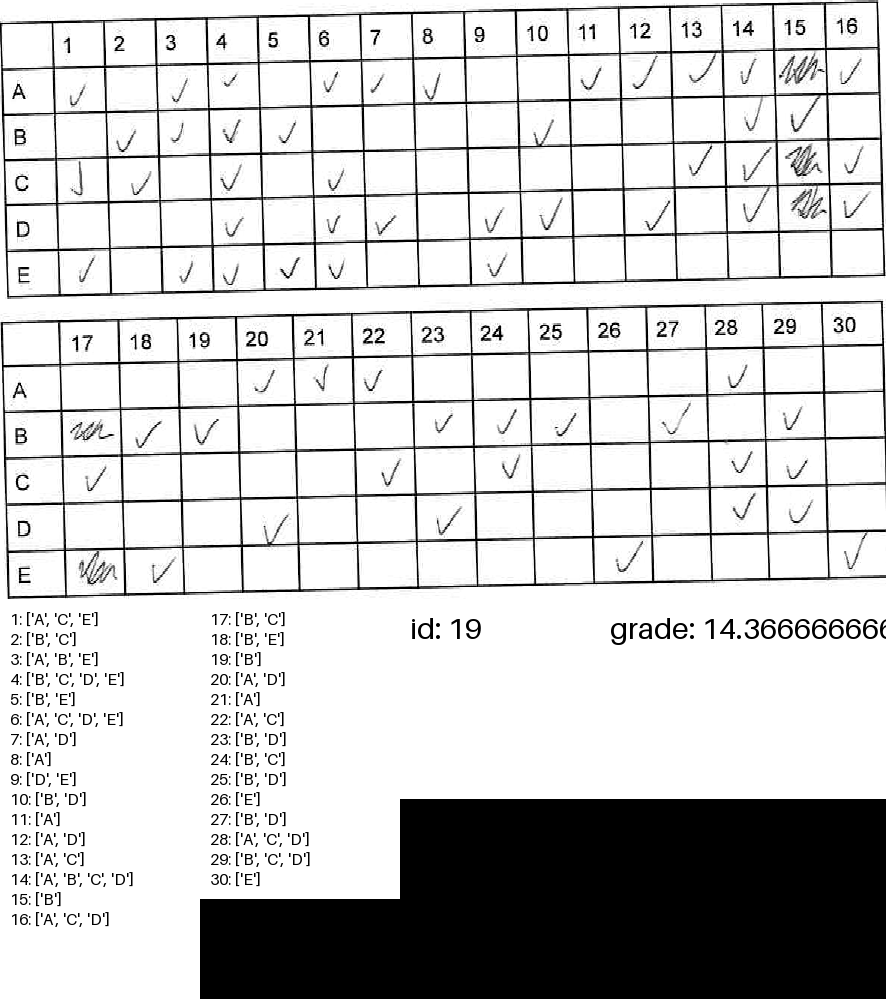 1 2 3 4 5 6 7 8 9 10 11 12 13 14 15 16
A ✓ ✓ ✓ ✓ ✓ ✓ ✓ ✓ ✓ ✓ ✓
B ✓ ✓ ✓ ✓ ✓ ✓ ✓
C ✓ ✓ ✓ ✓ ✓ ✓ ✓
D ✓ ✓ ✓ ✓ ✓ ✓ ✓ ✓
E ✓ ✓ ✓ ✓ ✓ ✓
17 18 19 20 21 22 23 24 25 26 27 28 29 30
A ✓ ✓ ✓ ✓
B ✓ ✓ ✓ ✓ ✓ ✓ ✓
C ✓ ✓ ✓ ✓ ✓
D ✓ ✓ ✓ ✓
E ✓ ✓ ✓
1: ['A', 'C', 'E']
2: ['B', 'C']
3: ['A', 'B', 'E']
4: ['B', 'C', 'D', 'E']
5: ['B', 'E']
6: ['A', 'C', 'D', 'E']
7: ['A', 'D']
8: ['A']
9: ['D', 'E']
10: ['B', 'D']
11: ['A']
12: ['A', 'D']
13: ['A', 'C']
14: ['A', 'B', 'C', 'D']
15: ['B']
16: ['A', 'C', 'D']
17: ['B', 'C']
18: ['B', 'E']
19: ['B']
20: ['A', 'D']
21: ['A']
22: ['A', 'C']
23: ['B', 'D']
24: ['B', 'C']
25: ['B', 'D']
26: ['E']
27: ['B', 'D']
28: ['A', 'C', 'D']
29: ['B', 'C', 'D']
30: ['E']
id: 19
grade: 14.366666666